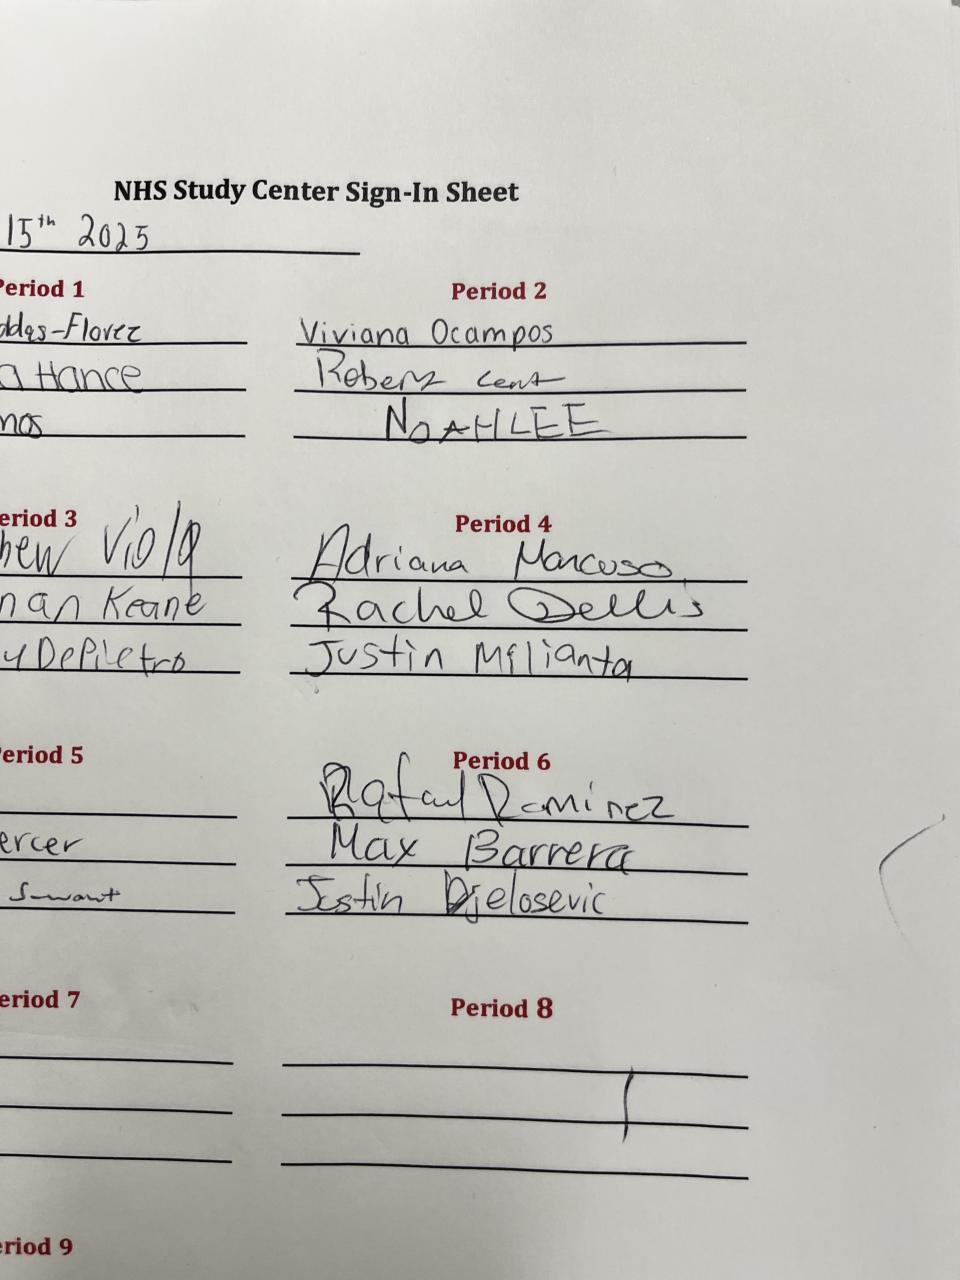 NHS Study Center Sign-In Sheet
15th 2025
Period 1
Period 2
-Florez
Viviana Ocampos
Hance
Robert Cent
mos
NOAH LEE
eriod 3
Period 4
hew Viola
Adriana Mancuso
nan Keane
Rachel Dellis
y DePietro
Justin Milianta
eriod 5
Period 6
Rafael Ramirez
ercer
Max Barrera
Justin Djelosevic
eriod 7
Period 8
eriod 9